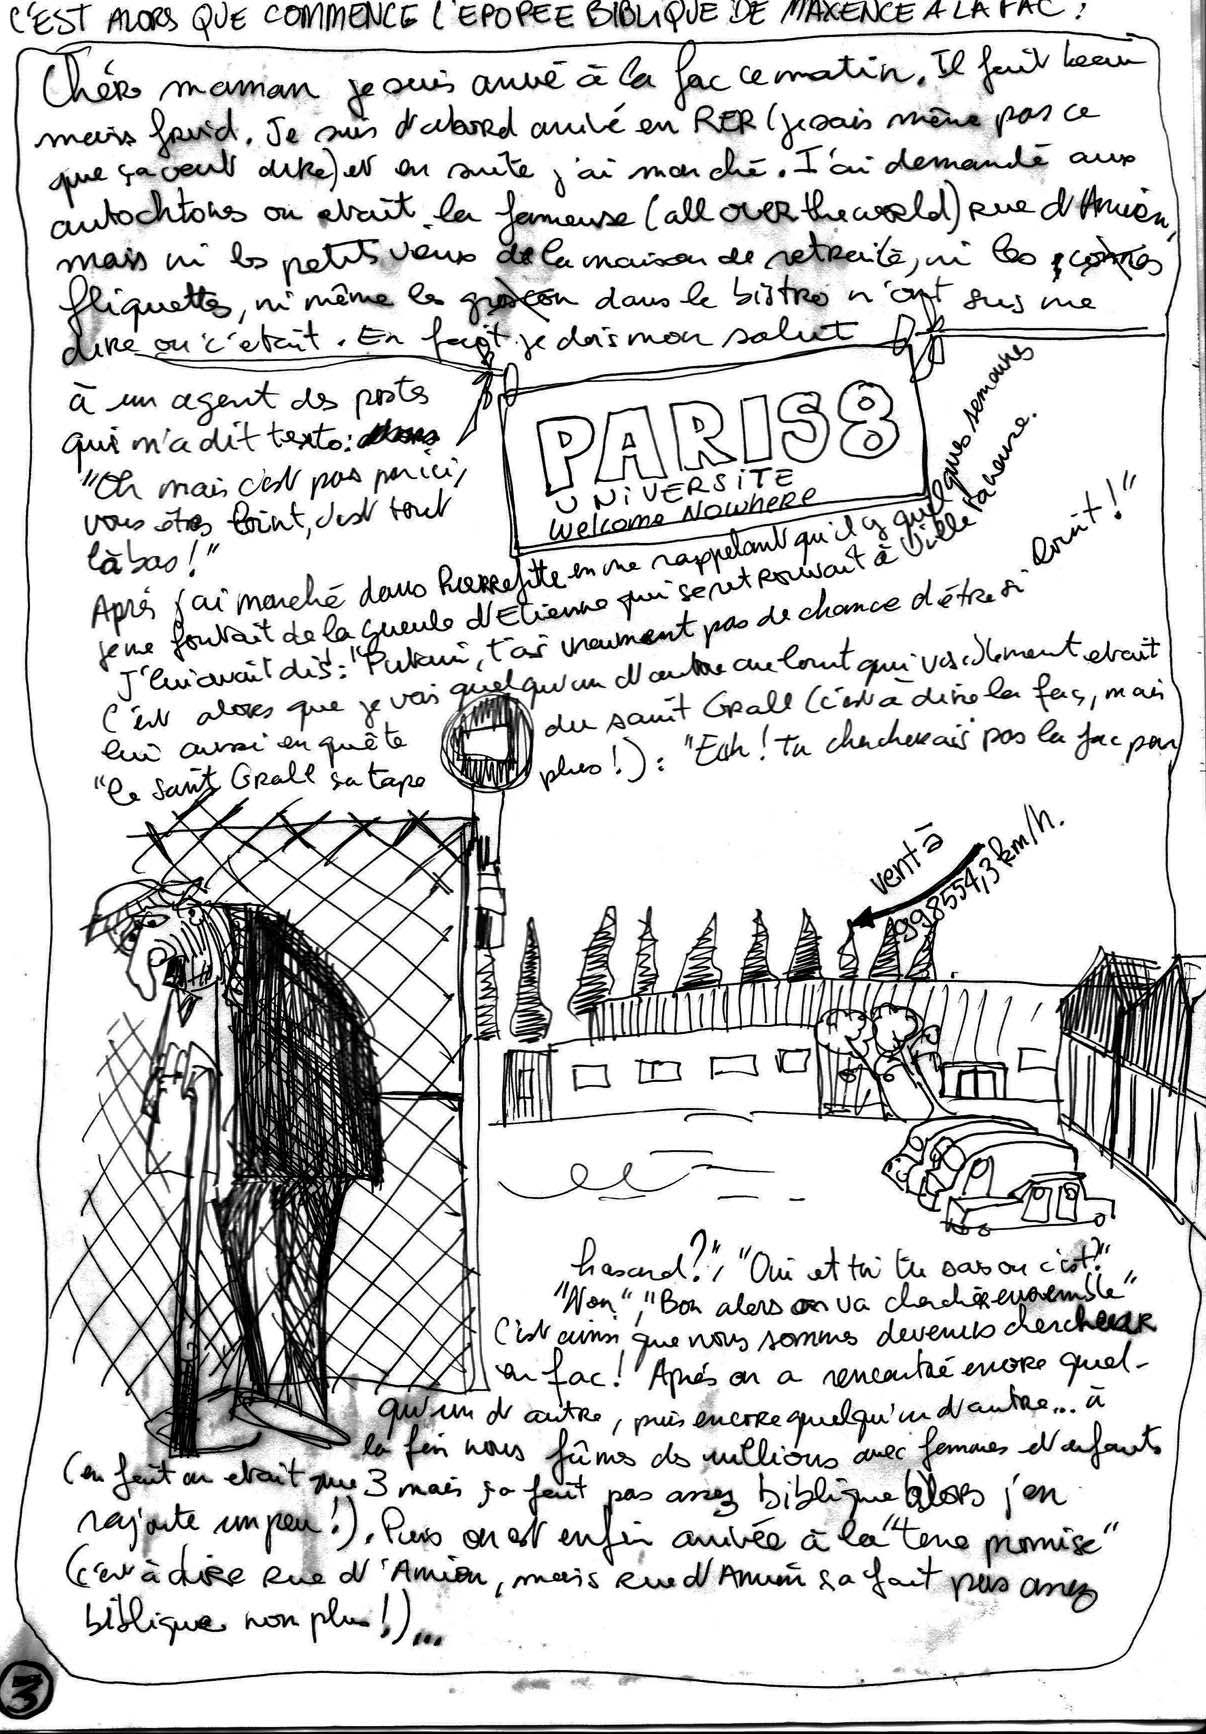 C'EST ALORS QUE COMMENCE L'EPOPEE BIBLIQUE DE MAXENCE A LA FAC :
Chére maman je suis arrivé à la fac ce matin. Il fait beau
mais froid. Je suis d'abord arrivé en RER (je sais même pas ce
que ça veut dire) et en suite j'ai marché. J'ai demandé aux
autochtones ou etait la fameuse (all over the world) rue d'Amien,
mais ni les petits vieux de la maison de retraite, ni les
fliquettes, ni même les dans le bistro n'ont sus me
dire ou c'etait. En fait je dois mon salut
à un agent des postes
qui m'a dit texto:
"Oh mais c'est pas par ici,
vous êtes loint, c'est tout
là bas!"
PARIS 8
UNIVERSITE
Welcome Nowhere
Aprés j'ai marché dans Pierrefitte en me rappelant qu'il y quelques semaines
je me foutait de la gueule d'Etienne qui se retrouvait à Villetaneuse.
J'lui avait dis: "Putain, t'as vraiment pas de chance d'être si loint!"
C'est alors que je vois quelqu'un d'autre au loint qui visiblement etait
lui aussi en quête du saint Graal (c'est à dire la fac, mais
"le saint Graal sa tape plus!): "Eeh! Tu chercherais pas la fac par
vent à
998554,3 km/h.
hasard?", "Oui et toi tu sas ou c'est?"
"Non", "Bon alors on va chercher ensemble"
C'est ainsi que nous sommes devenus chercheur
en fac! Aprés on a rencontré encore quel-
qu'un d'autre, puis encore quelqu'un d'autre... à
la fin nous fûmes des millions avec femmes et enfants
(en fait on etait que 3 mais ça fait pas assez biblique alors j'en
rajoute un peu!). Puis on est enfin arrivée à la "terre promise"
(c'est à dire rue d'Amien, mais rue d'Amien sa fait pas assez
biblique non plus!)...
3